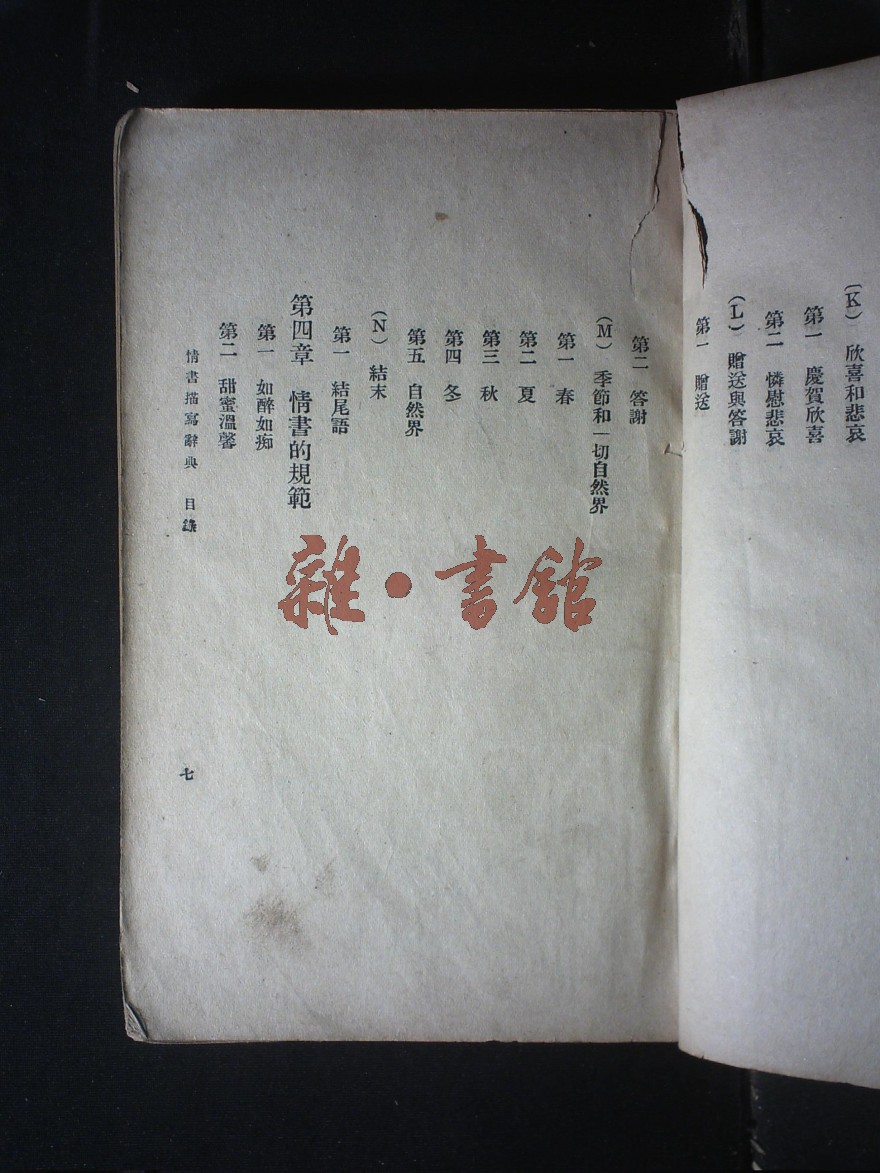 (K) 欣喜和悲哀
第一 慶賀欣喜
第二 憐慰悲哀
(L) 贈送與答謝
第一 贈送
第二 答謝
(M) 季節和一切自然界
第一 春
第二 夏
第三 秋
第四 冬
第五 自然界
(N) 結末
第一 結尾語
第四章 情書的規範
第一 如醉如痴
第二 甜蜜溫馨
情書描寫辭典 目錄
七
雜·書館